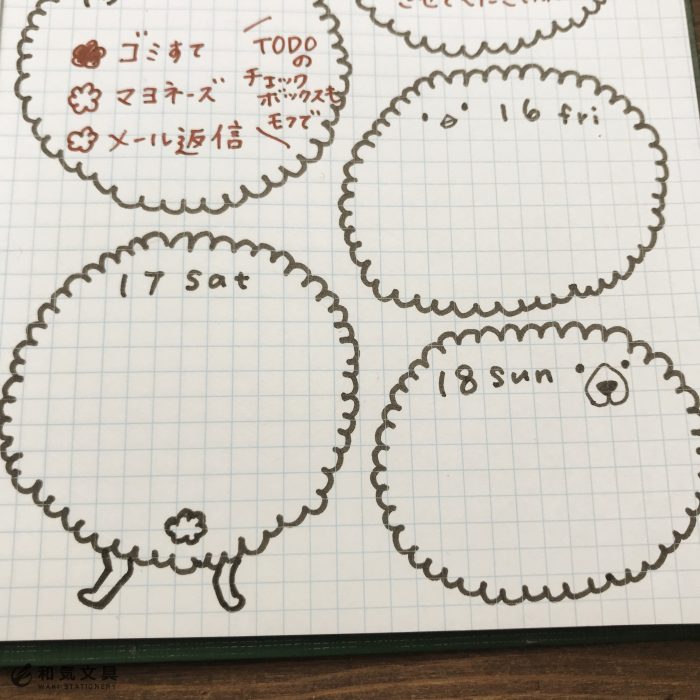 ゴミすて
マヨネーズ
メール返信
TODO
の
チェック
ボックスも
モフで
16 fri
17 sat
18 sun
和気文具
WAKI STATIONERY